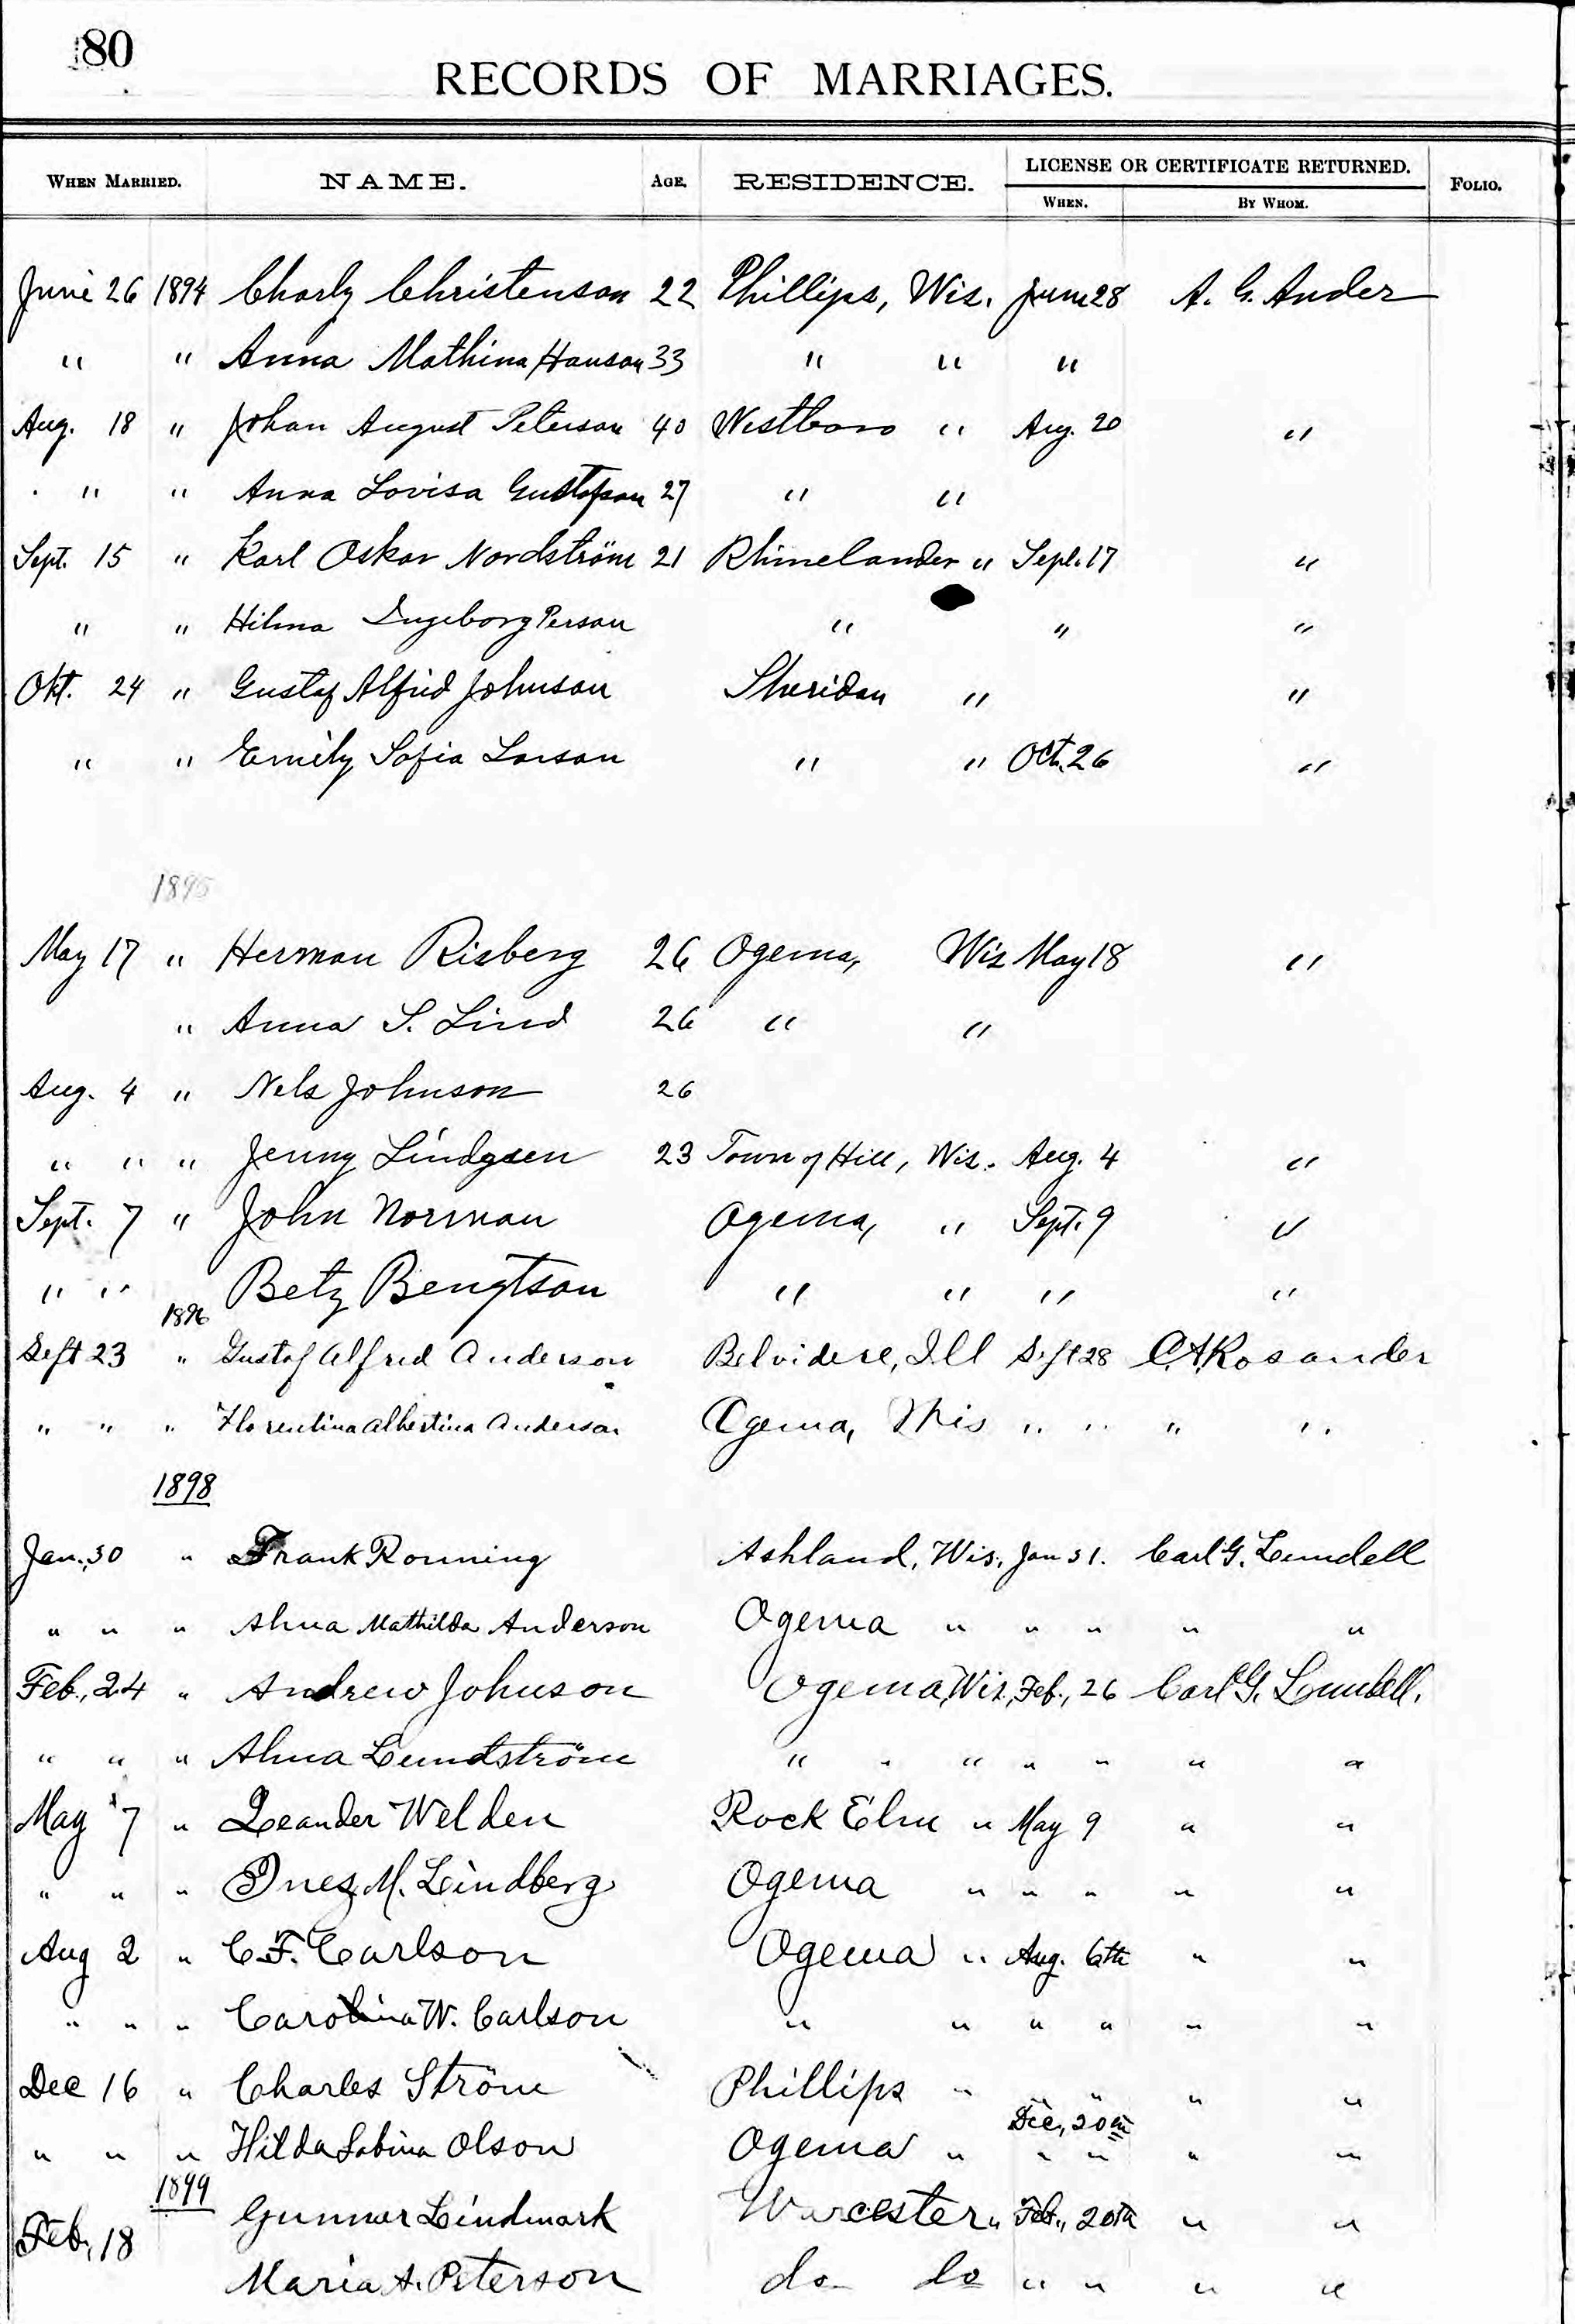 80
RECORDS OF MARRIAGES.
WHEN MARRIED. NAME. AGE. RESIDENCE. LICENSE OR CERTIFICATE RETURNED. FOLIO.
WHEN. BY WHOM.
June 26 1894 Charly Christenson 22 Phillips, Wis. June 28 A. G. Ander
" " Anna Mathina Hanson 33 " " "
Aug. 18 " Johan August Peterson 40 Westboro " Aug. 20 "
" " Anna Lovisa Gustafson 27 " "
Sept. 15 " Karl Oskar Nordström 21 Rhinelander " Sept. 17 "
" " Hilma Ingeborg Person " " "
Okt. 24 " Gustaf Alfrid Johnson Sheridan " "
" " Emily Sofia Larson " " Oct. 26 "
1895
May 17 " Herman Risberg 26 Ogema, Wis May 18 "
" Anna S. Lind 26 " "
Aug. 4 " Nels Johnson 26
" " " Jenny Lindgren 23 Town of Hill, Wis. Aug. 4 "
Sept. 7 " John Norman Ogema, " Sept. 9 "
" " Betz Bengtson " " " "
1896
Sept 23 " Gustaf Alfred Anderson Belvidere, Ill Sept 28 C.A. Rosander
" " " Florentina Albertina Anderson Ogema, Wis " " " "
1898
Jan. 30 " Frank Ronning Ashland, Wis. Jan 31. Carl G. Lundell
" " " Alma Mathilda Anderson Ogema " " " " "
Feb., 24 " Andrew Johnson Ogema, Wis., Feb., 26 Carl G. Lundell.
" " " Alma Lundström " " " " " " "
May 7 " Leander Welden Rock Elm " May 9 " "
" " " Inez M. Lindberg Ogema " " " " "
Aug 2 " C.F. Carlson Ogema " Aug. 6th " "
" " " Carolina W. Carlson " " " " " "
Dec 16 " Charles Ström Phillips " " " " "
Dec., 20th
" " " Hilda Sabina Olson Ogema " " " " "
1899
Feb., 18 Gunnar Lindmark Worcester " Feb., 20th " "
Maria A. Peterson do do " " " "